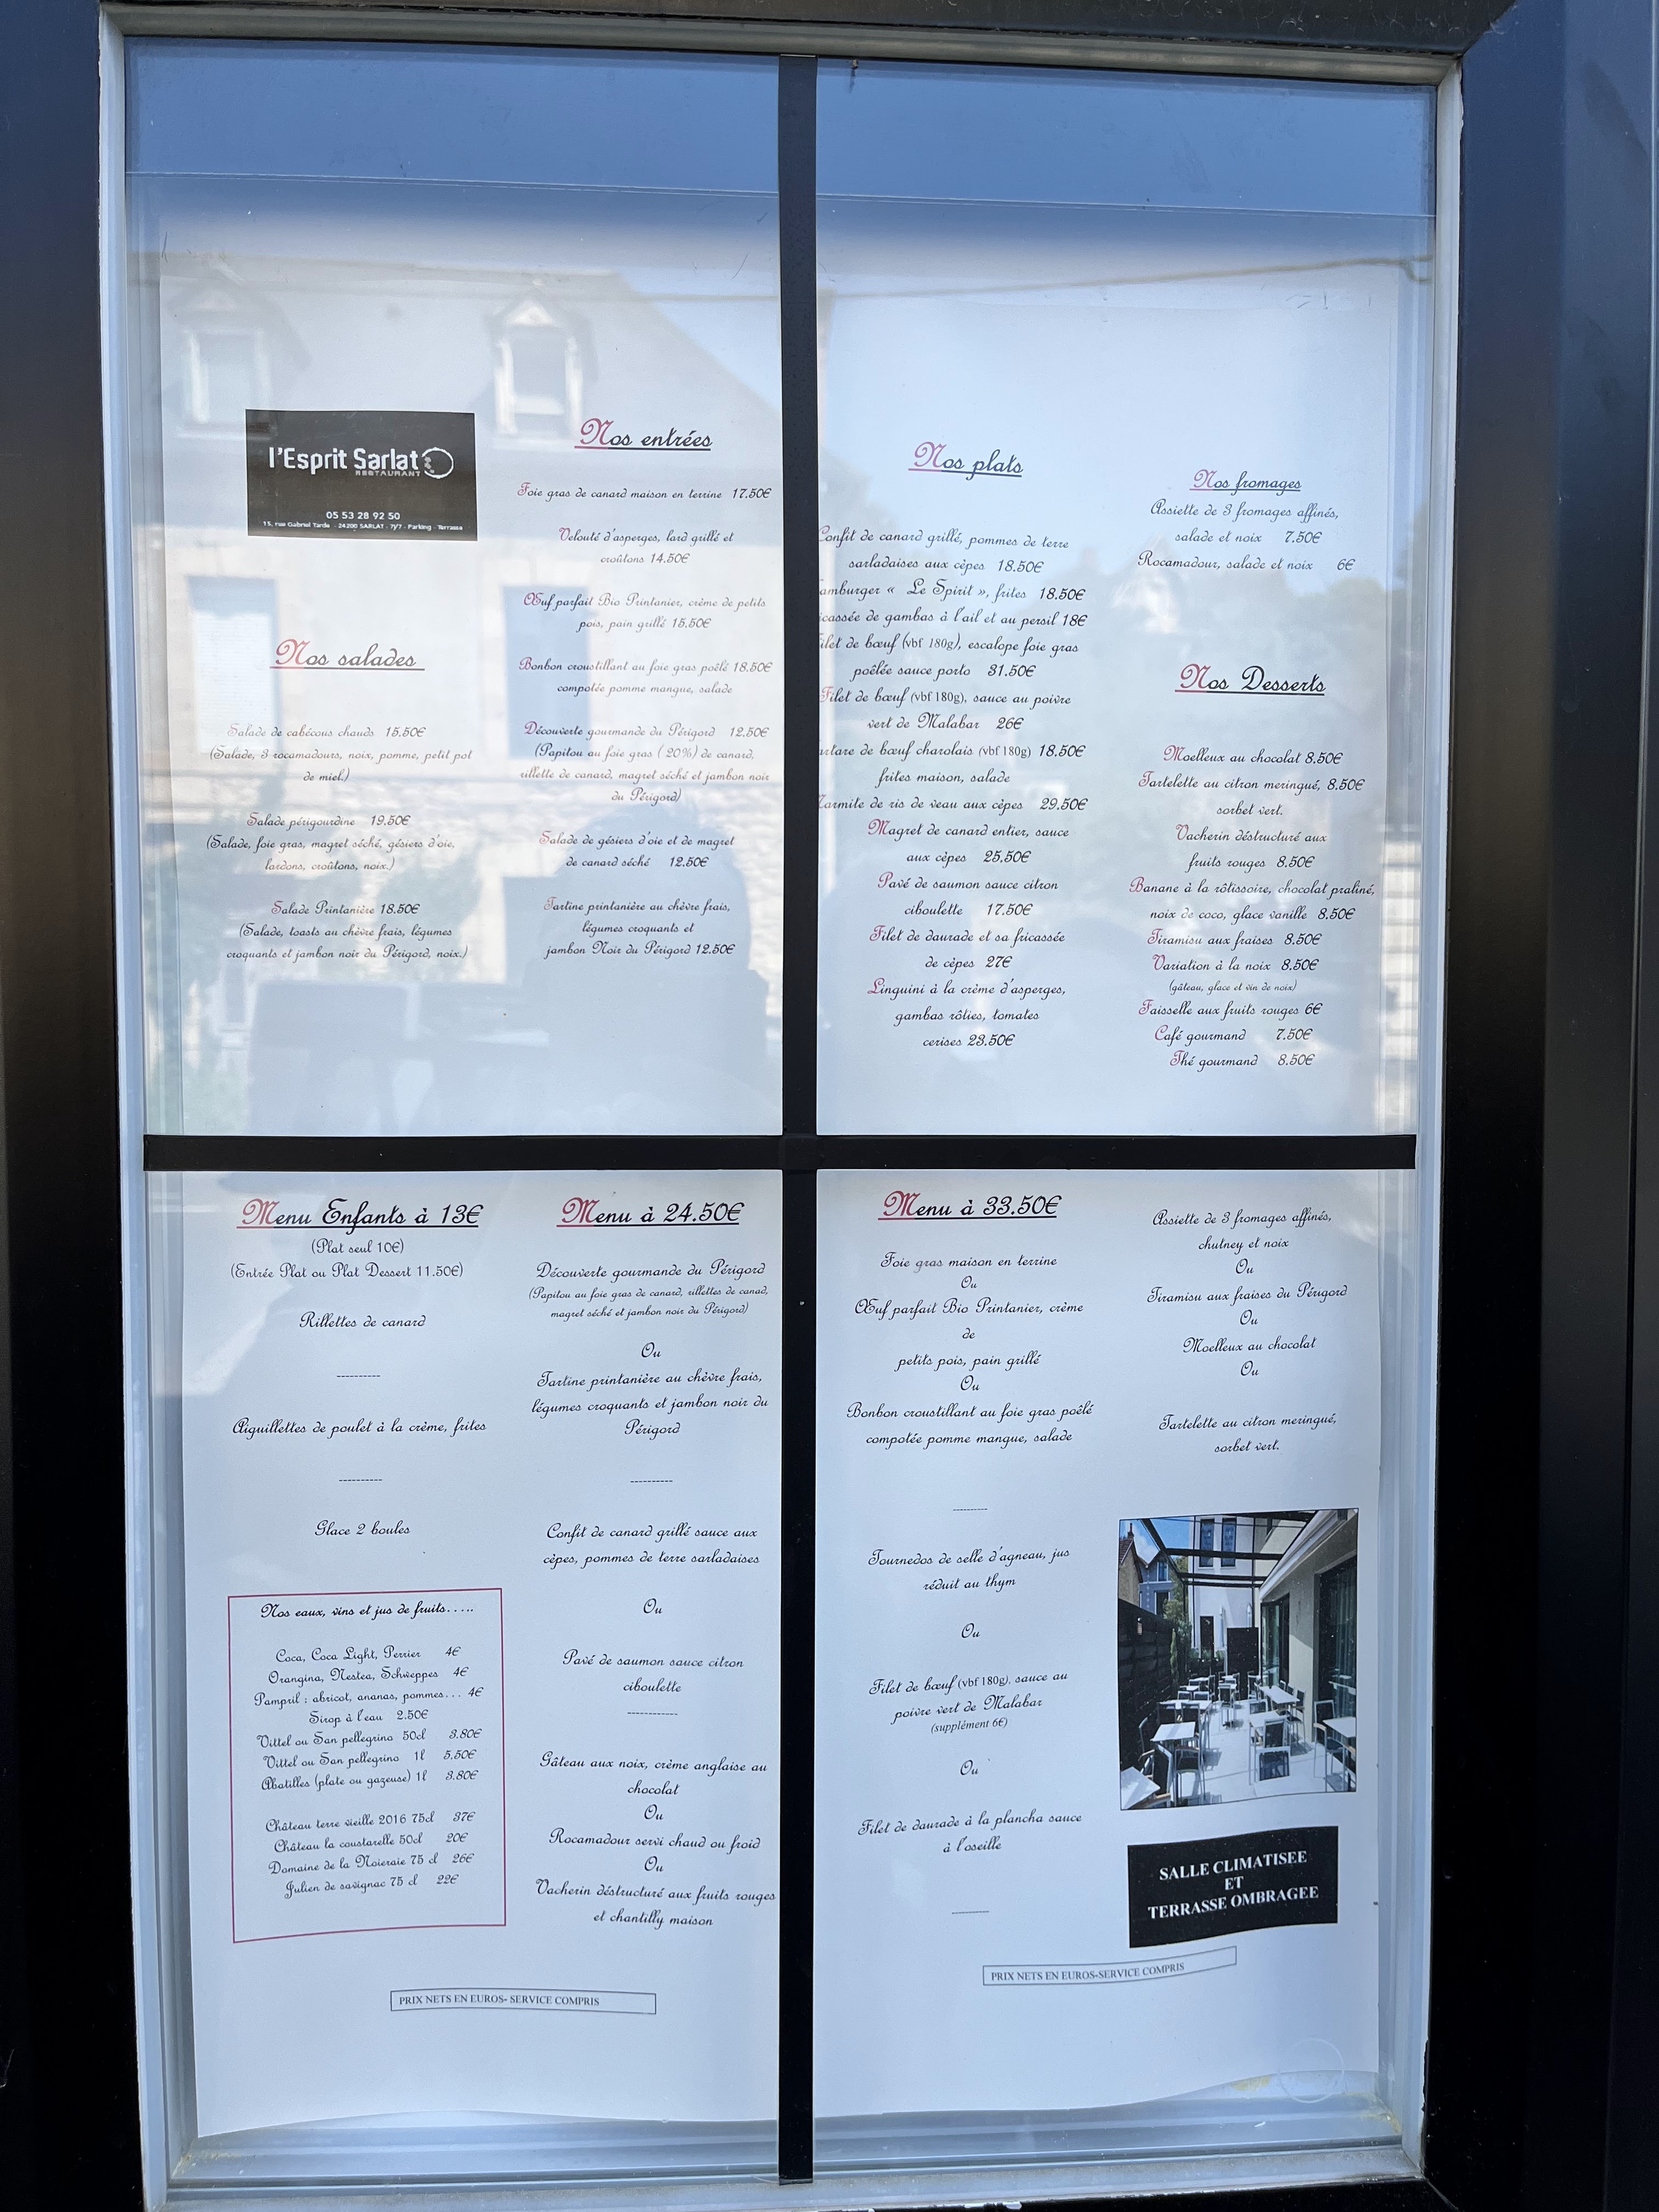 l'Esprit Sarlat
RESTAURANT
05 53 28 92 50
15, rue Gabriel Tarde - 24200 SARLAT - 7j/7 - Parking - Terrasse
Nos salades
Salade de cabécous chauds 15.50€
(Salade, 3 rocamadours, noix, pomme, petit pot
de miel.)
Salade périgourdine 19.50€
(Salade, foie gras, magret séché, gésiers d'oie,
lardons, croûtons, noix.)
Salade Printanière 18.50€
(Salade, toasts au chèvre frais, légumes
croquants et jambon noir du Périgord, noix.)
Nos entrées
Foie gras de canard maison en terrine 17.50€
Velouté d'asperges, lard grillé et
croûtons 14.50€
Œuf parfait Bio Printanier, crème de petits
pois, pain grillé 15.50€
Bonbon croustillant au foie gras poêlé 18.50€
compotée pomme mangue, salade
Découverte gourmande du Périgord 12.50€
(Papitou au foie gras ( 20%) de canard,
rillette de canard, magret séché et jambon noir
du Périgord)
Salade de gésiers d'oie et de magret
de canard séché 12.50€
Tartine printanière au chèvre frais,
légumes croquants et
jambon Noir du Périgord 12.50€
Nos plats
Confit de canard grillé, pommes de terre
sarladaises aux cèpes 18.50€
amburger « Le Spirit », frites 18.50€
icassée de gambas à l'ail et au persil 18€
ilet de bœuf (vbf 180g), escalope foie gras
poêlée sauce porto 31.50€
Filet de bœuf (vbf 180g), sauce au poivre
vert de Malabar 26€
artare de bœuf charolais (vbf 180g) 18.50€
frites maison, salade
armite de ris de veau aux cèpes 29.50€
Magret de canard entier, sauce
aux cèpes 25.50€
Pavé de saumon sauce citron
ciboulette 17.50€
Filet de daurade et sa fricassée
de cèpes 27€
Linguini à la crème d'asperges,
gambas rôties, tomates
cerises 23.50€
Nos fromages
Assiette de 3 fromages affinés,
salade et noix 7.50€
Rocamadour, salade et noix 6€
Nos Desserts
Moelleux au chocolat 8.50€
Tartelette au citron meringué, 8.50€
sorbet vert.
Vacherin déstructuré aux
fruits rouges 8.50€
Banane à la rôtissoire, chocolat praliné,
noix de coco, glace vanille 8.50€
Tiramisu aux fraises 8.50€
Variation à la noix 8.50€
(gâteau, glace et vin de noix)
Faisselle aux fruits rouges 6€
Café gourmand 7.50€
Thé gourmand 8.50€
Menu Enfants à 13€
(Plat seul 10€)
(Entrée Plat ou Plat Dessert 11.50€)
Rillettes de canard
----------
Aiguillettes de poulet à la crème, frites
----------
Glace 2 boules
Nos eaux, vins et jus de fruits.....
Coca, Coca Light, Perrier 4€
Orangina, Nestea, Schweppes 4€
Pampril : abricot, ananas, pommes... 4€
Sirop à l'eau 2.50€
Vittel ou San pellegrino 50cl 3.80€
Vittel ou San pellegrino 1l 5.50€
Abatilles (plate ou gazeuse) 1l 3.80€
Château terre vieille 2016 75cl 37€
Château la coustarelle 50cl 20€
Domaine de la Noieraie 75 cl 26€
Julien de savignac 75 cl 22€
Menu à 24.50€
Découverte gourmande du Périgord
(Papitou au foie gras de canard, rillettes de canad,
magret séché et jambon noir du Périgord)
Ou
Tartine printanière au chèvre frais,
légumes croquants et jambon noir du
Périgord
----------
Confit de canard grillé sauce aux
cèpes, pommes de terre sarladaises
Ou
Pavé de saumon sauce citron
ciboulette
------------
Gâteau aux noix, crème anglaise au
chocolat
Ou
Rocamadour servi chaud ou froid
Ou
Vacherin déstructuré aux fruits rouges
et chantilly maison
PRIX NETS EN EUROS- SERVICE COMPRIS
Menu à 33.50€
Foie gras maison en terrine
Ou
Œuf parfait Bio Printanier, crème
de
petits pois, pain grillé
Ou
Bonbon croustillant au foie gras poêlé
compotée pomme mangue, salade
--------
Tournedos de selle d'agneau, jus
réduit au thym
Ou
Filet de bœuf (vbf 180g), sauce au
poivre vert de Malabar
(supplément 6€)
Ou
Filet de daurade à la plancha sauce
à l'oseille
--------
Assiette de 3 fromages affinés,
chutney et noix
Ou
Tiramisu aux fraises du Périgord
Ou
Moelleux au chocolat
Ou
Tartelette au citron meringué,
sorbet vert.
SALLE CLIMATISEE
ET
TERRASSE OMBRAGEE
PRIX NETS EN EUROS-SERVICE COMPRIS